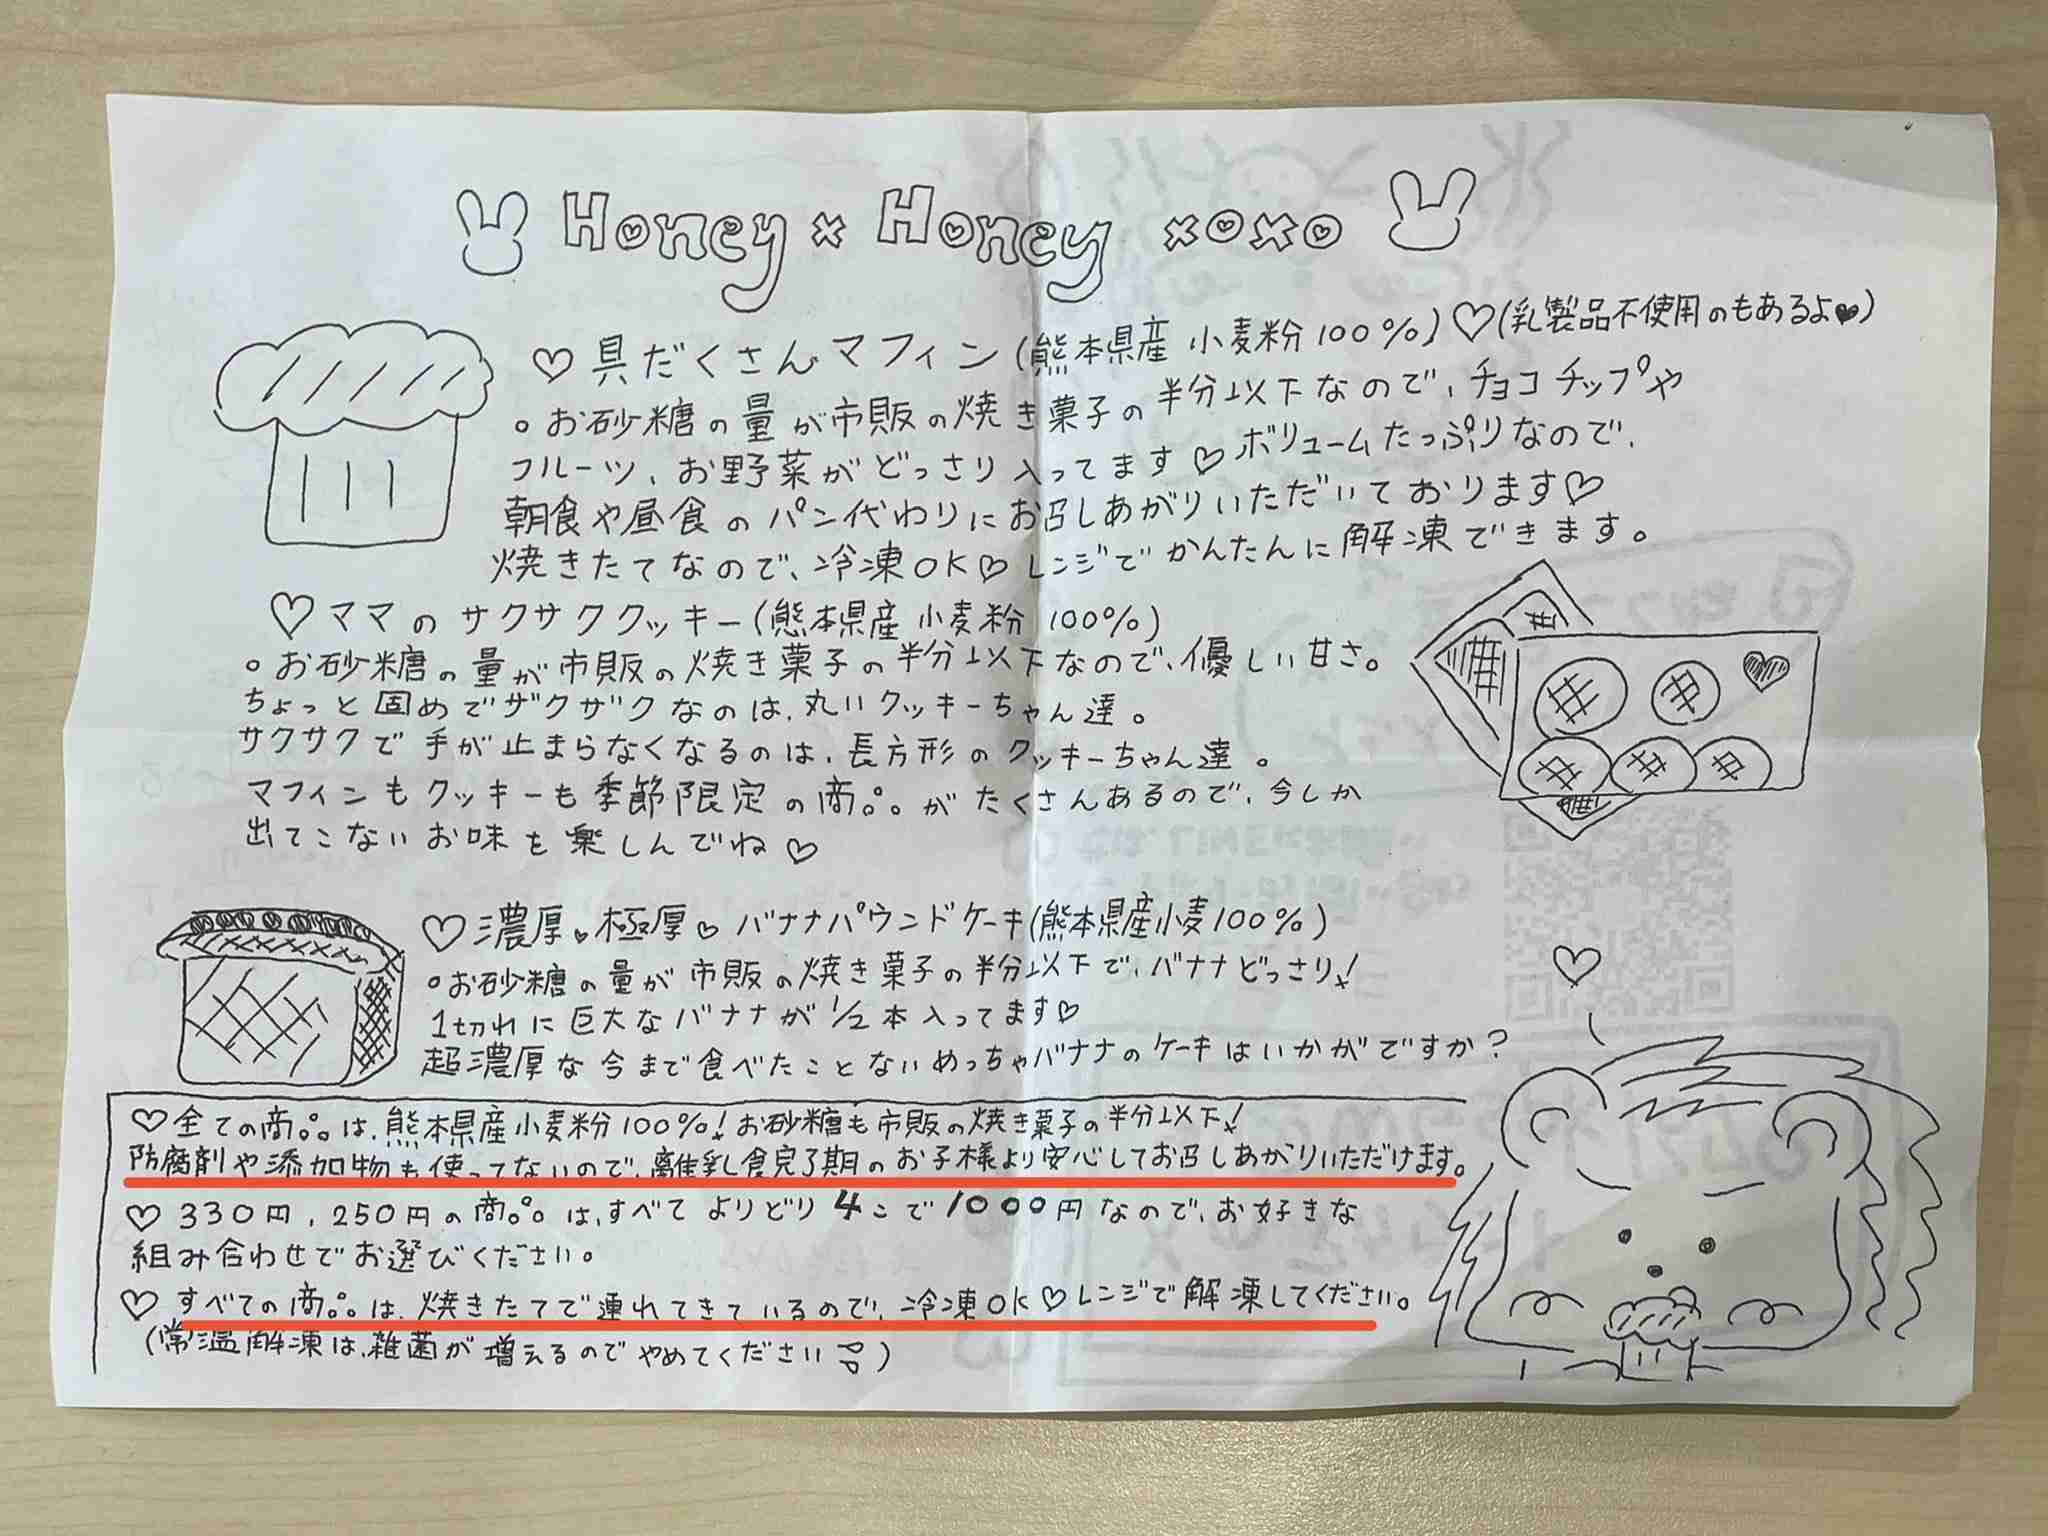 Honey × Honey xoxo
♡具だくさんマフィン(熊本県産 小麦粉100%)♡(乳製品不使用のもあるよ♥)
。お砂糖の量が市販の焼き菓子の半分以下なので、チョコチップや
フルーツ、お野菜がどっさり入ってます♡ボリュームたっぷりなので、
朝食や昼食のパン代わりにお召しあがりいただいております♡
焼きたてなので、冷凍OK♡レンジでかんたんに解凍できます。
♡ママのサクサククッキー(熊本県産 小麦粉 100%)
。お砂糖の量が市販の焼き菓子の半分以下なので、優しい甘さ。
ちょっと固めでザクザクなのは、丸いクッキーちゃん達。
サクサクで手が止まらなくなるのは、長方形のクッキーちゃん達。
マフィンもクッキーも季節限定の商品がたくさんあるので、今しか
出てこないお味を楽しんでね♡
♡濃厚♥極厚♡バナナパウンドケーキ(熊本県産小麦100%)
。お砂糖の量が市販の焼き菓子の半分以下で、バナナどっさり!
1切れに巨大なバナナが1/2本入ってます♡
超濃厚な今まで食べたことないめっちゃバナナのケーキはいかがですか?
♡全ての商品は、熊本県産小麦粉100%!お砂糖も市販の焼き菓子の半分以下!
防腐剤や添加物も使ってないので、離乳食完了期のお子様より安心してお召しあがりいただけます。
♡330円、250円の商品は、すべてよりどり4こで1000円なので、お好きな
組み合わせでお選びください。
♡すべての商品は、焼きたてで連れてきているので、冷凍OK♡レンジで解凍してください。
(常温解凍は、雑菌が増えるのでやめてください)